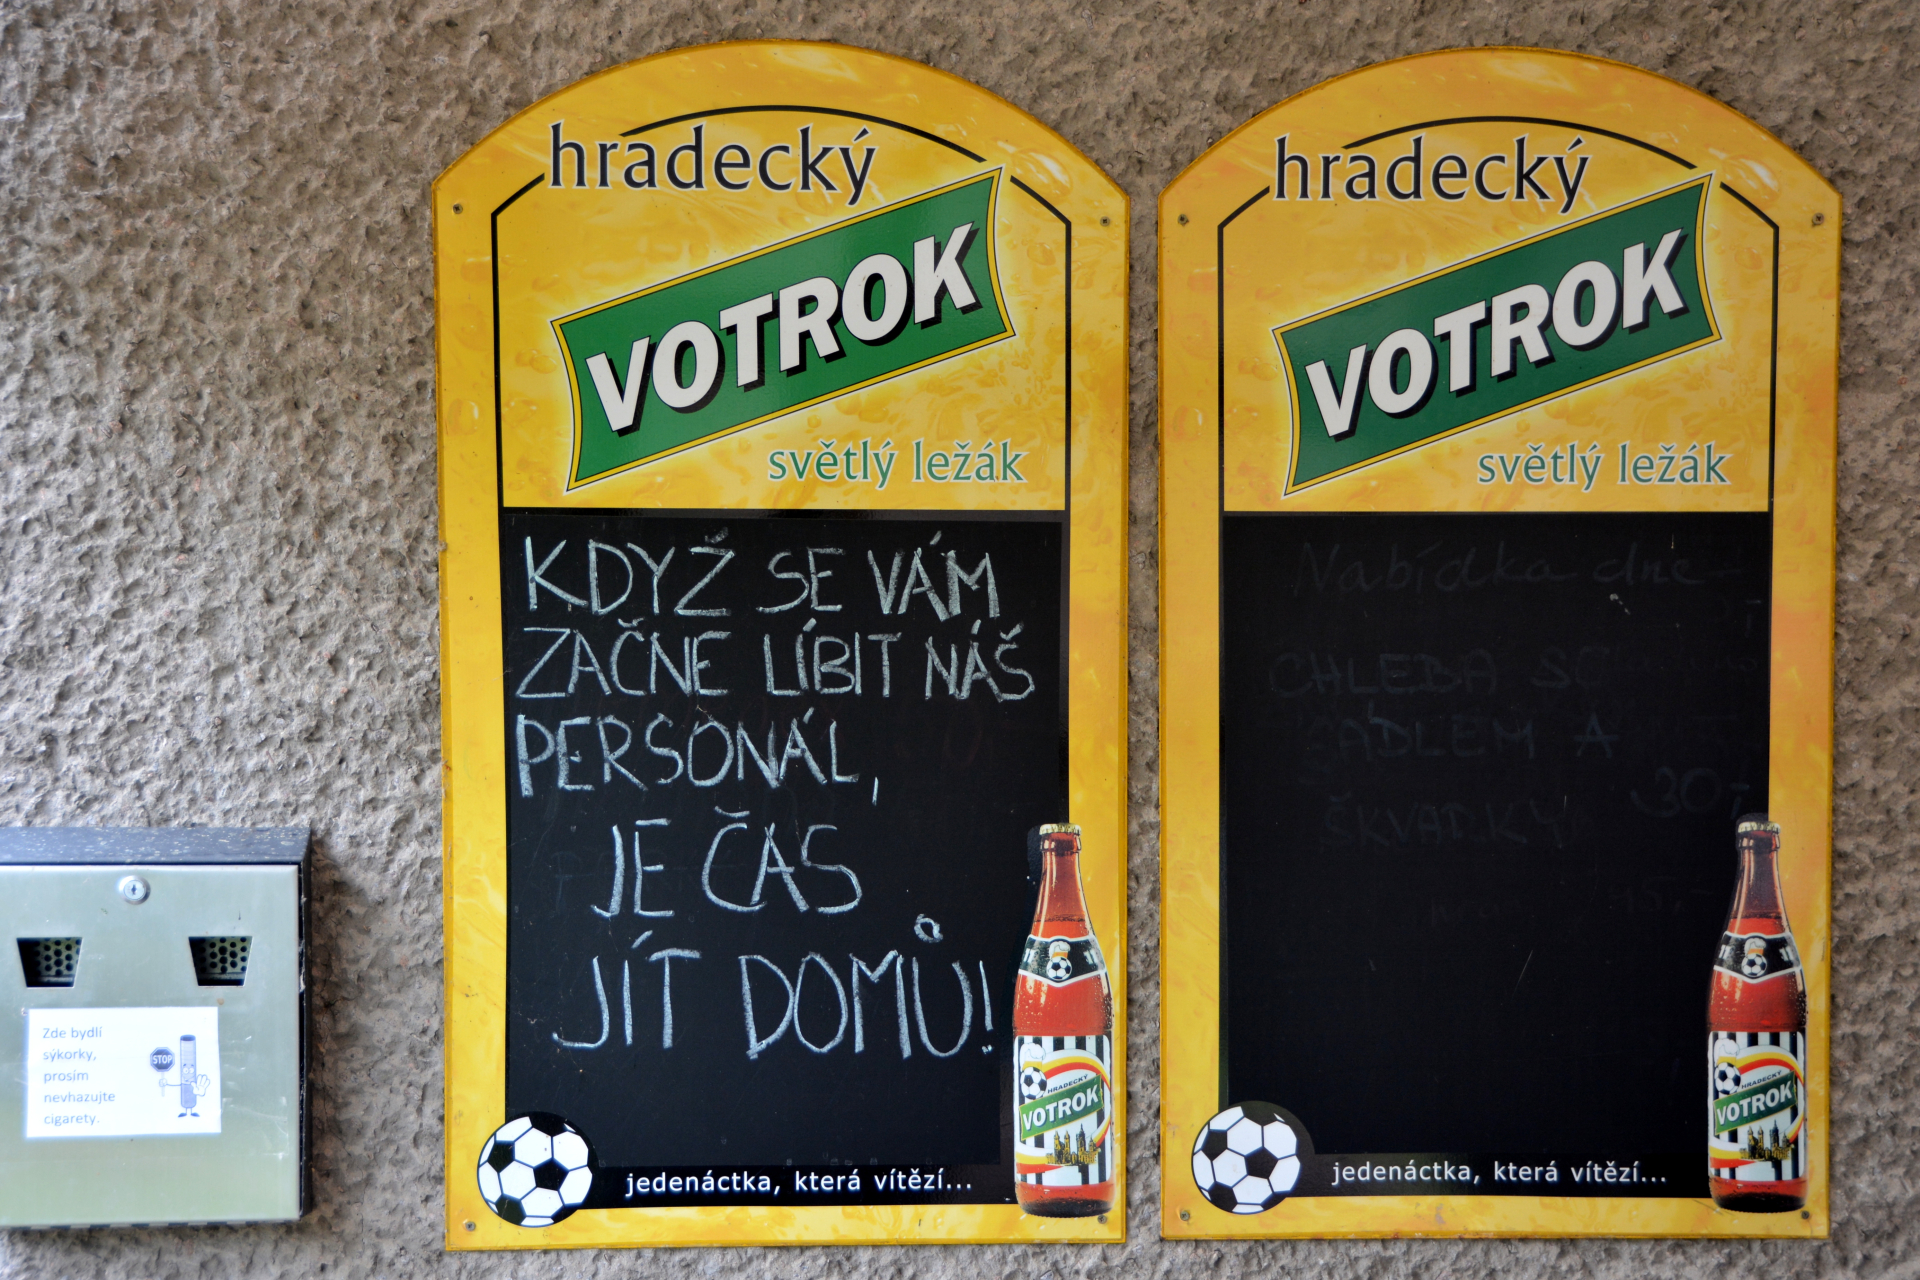 hradecký
VOTROK
světlý ležák
KDYŽ SE VÁM
ZAČNE LÍBIT NÁŠ
PERSONÁL,
JE ČAS
JÍT DOMŮ!
HRADECKÝ
VOTROK
jedenáctka, která vítězí...
hradecký
VOTROK
světlý ležák
Nabídka dne
CHLEBA SE
SÁDLEM A
ŠKVARKY 30,-
15,-
HRADECKÝ
VOTROK
jedenáctka, která vítězí...
Zde bydlí
sýkorky,
prosím
nevhazujte
cigarety.
STOP